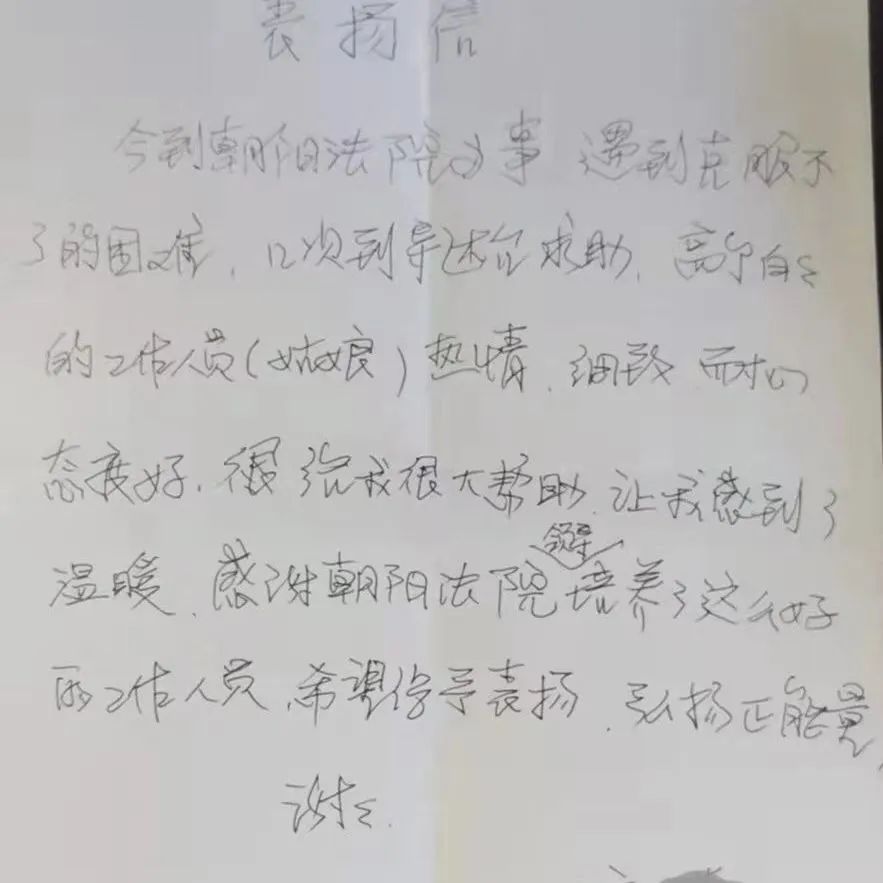 表扬信
今到朝阳法院办事 遇到克服不
了的困难，几次到导达台求助，高个白々
的工作人员（姑娘）热情、细致 耐心
态度好，很给我很大帮助，让我感到了
温暖、感谢朝阳法院领导培养了这么好
的工作人员，希望给予表扬，弘扬正能量，
谢々.